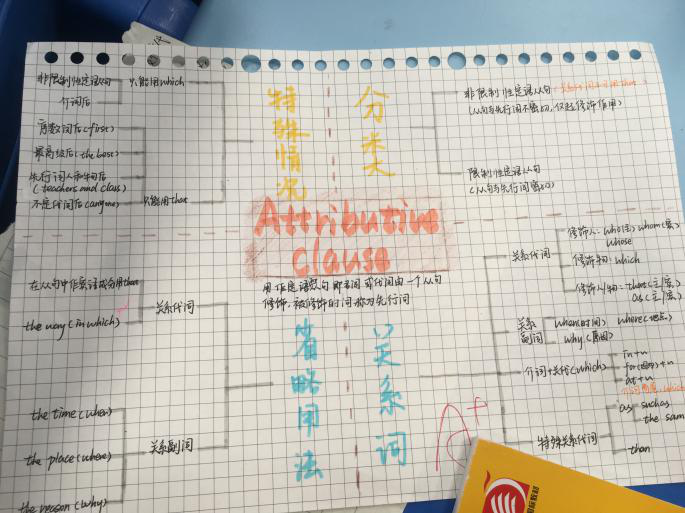 非限制性定语从句
介词后
只能用which
序数词后(first)
最高级后(the best)
先行词人和物后
(teachers and class)
不定代词后(anyone)
只能用that
特殊情况
分类
非限制性定语从句
(从句与先行词不密切,仅起修饰作用)
限制性定语从句
(从句与先行词密切)
Attributive
clause
用作定语从句即名词或代词由一个从句
修饰,被修饰的词称为先行词
the way (in which)
关系代词
the time (when)
the place (where)
the reason (why)
关系副词
省略用法
关系词
关系代词
修饰人: who(主) whom(宾)
whose
修饰物: which
修饰人/物: that(主/宾)
as(主/宾)
关系
副词
when(时间) where(地点)
why(原因)
介词+关代(which)
in+n
for(原因)+n
at+n
特殊关系代词
as
such as
the sam
than
A+